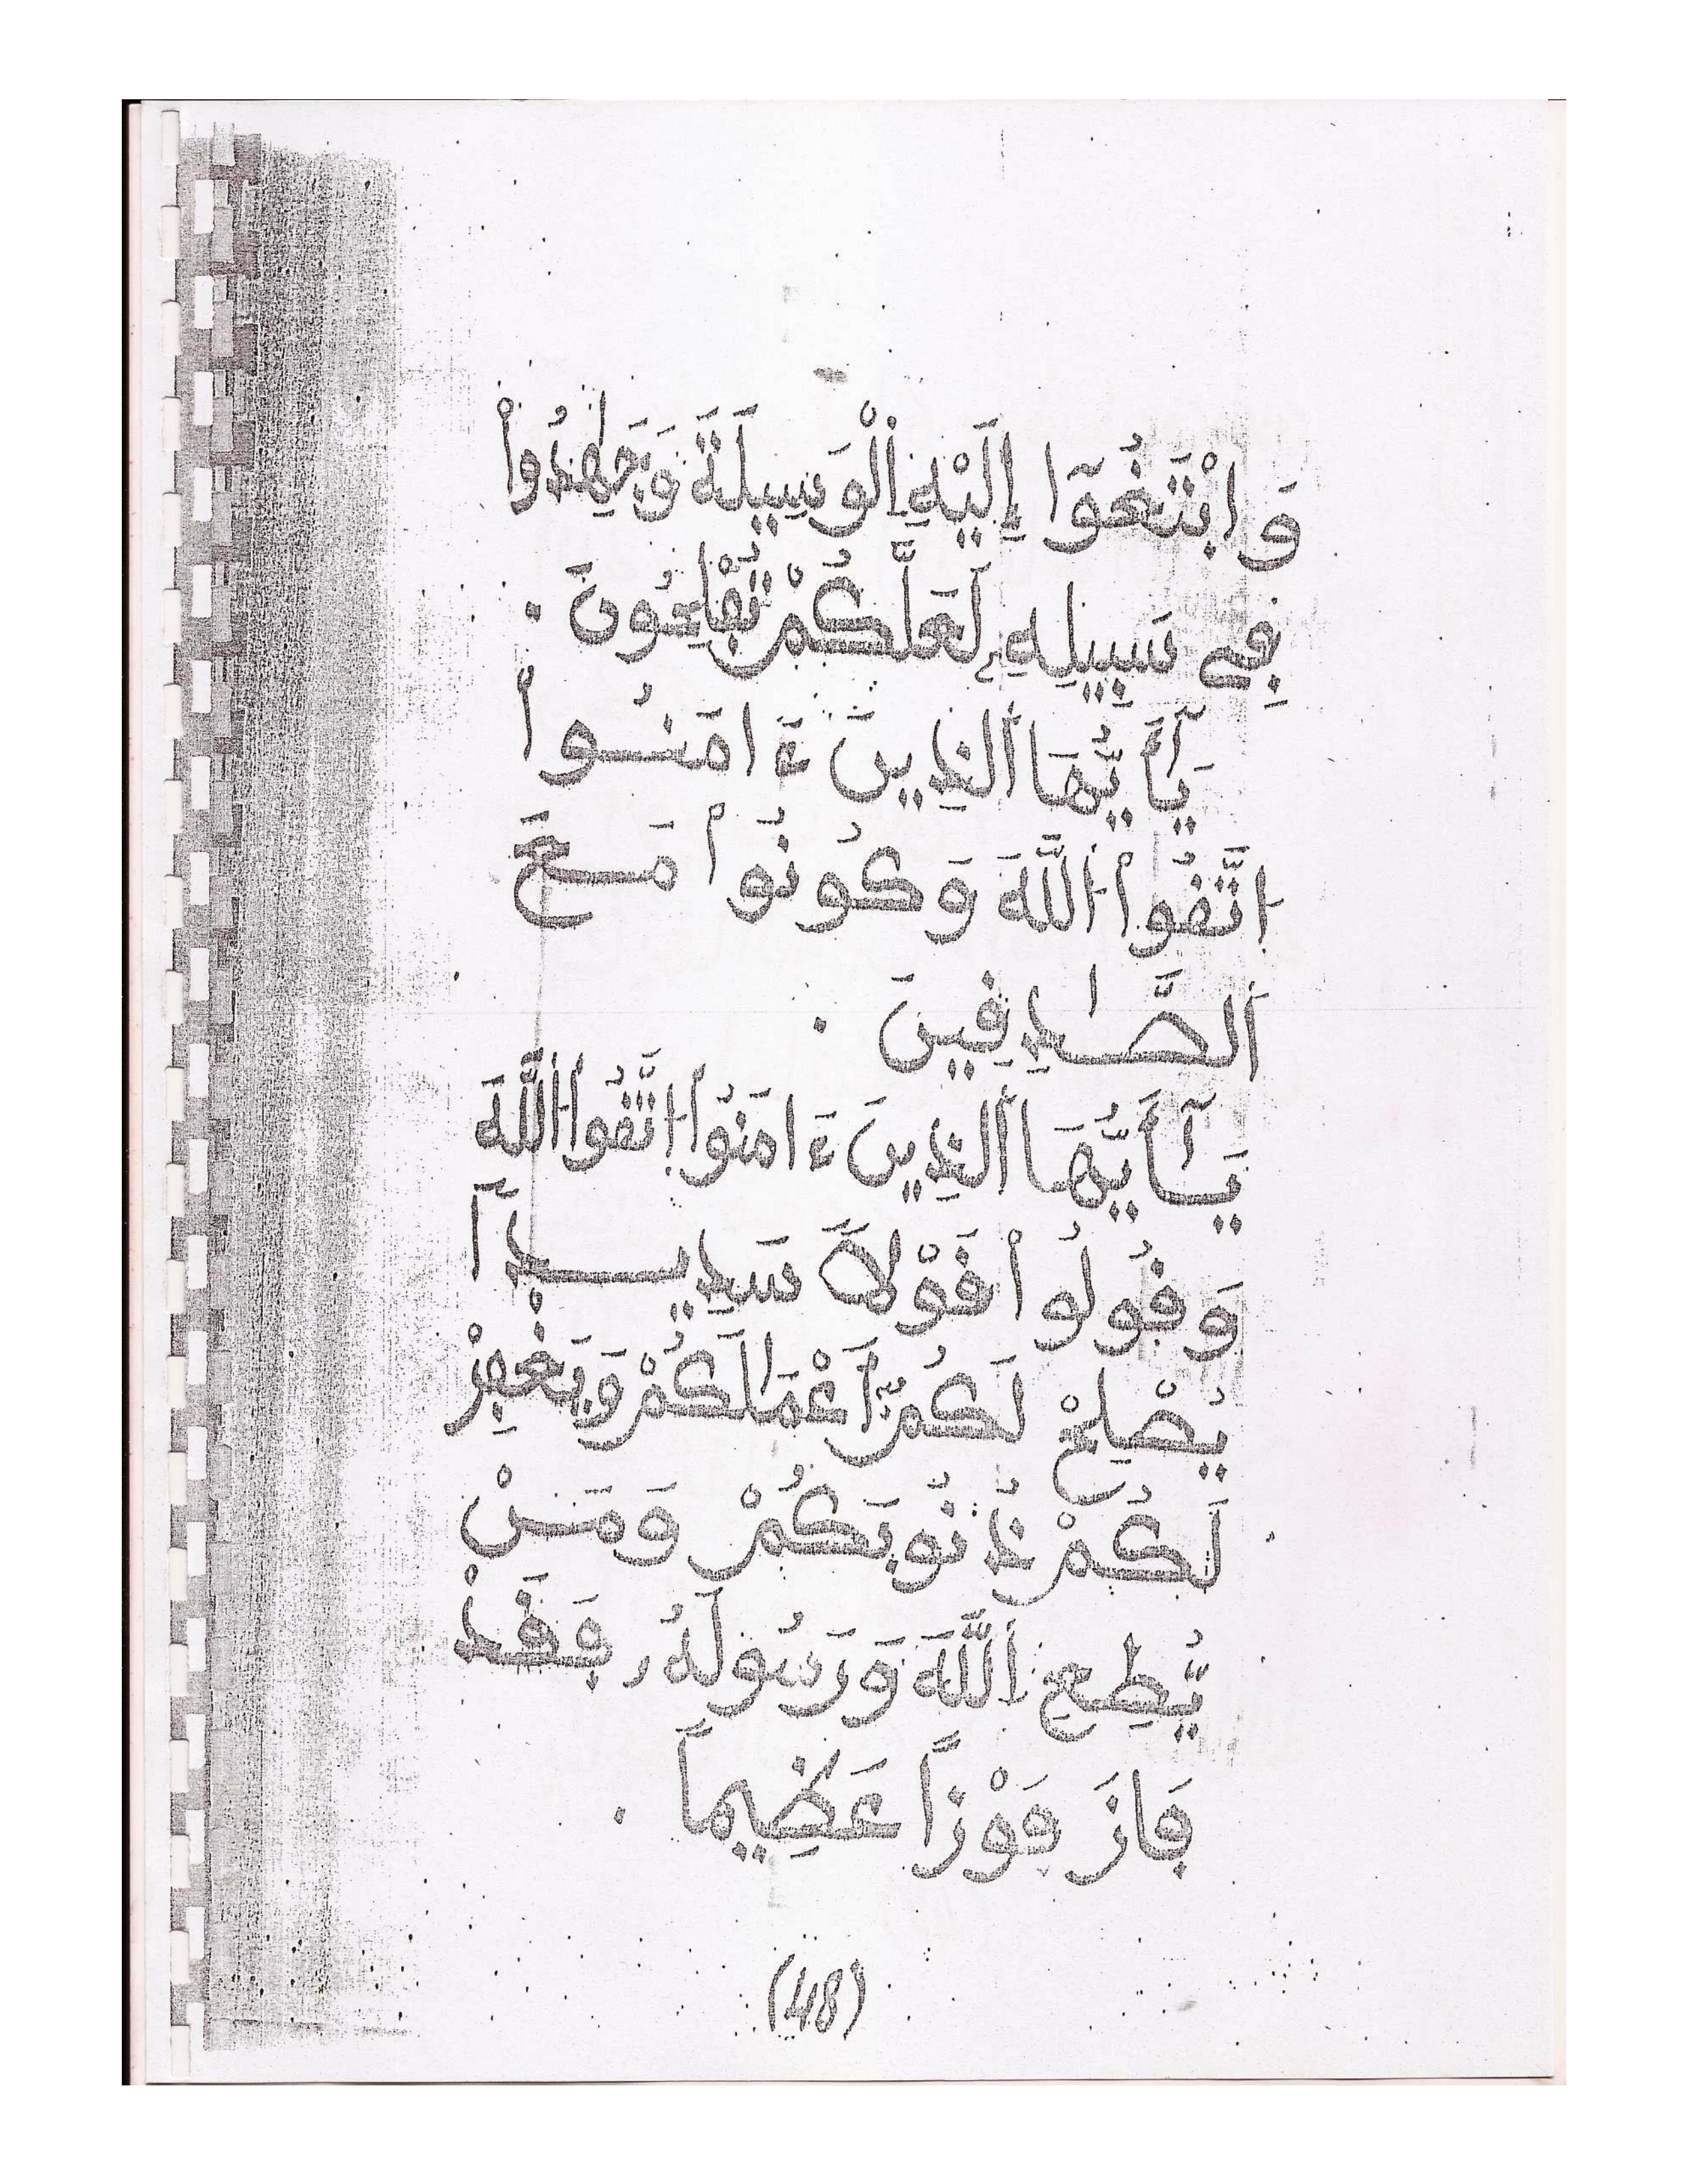 وَابْتَغُوٓا إِلَيْهِ اِ۬لْوَسِيلَةَ وَجَٰهِدُواْ
فِے سَبِيلِهِۦ لَعَلَّكُمْ تُفْلِحُونَ .
يَٰٓأَيُّهَا اَ۬لذِينَ ءَامَنُواْ
اتَّقُواْ اُ۬للَّهَ وَكُونُواْ مَعَ
اَ۬لصَّٰدِقِينَ .
يَٰٓأَيُّهَا اَ۬لذِينَ ءَامَنُواْ اتَّقُواْ اُ۬للَّهَ
وَقُولُواْ قَوْلاً سَدِيداً
يُصْلِحْ لَكُمُۥٓ أَعْمَٰلَكُمْ وَيَغْفِرْ
لَكُمْ ذُنُوبَكُمْ وَمَنْ
يُّطِعِ اِ۬للَّهَ وَرَسُولَهُۥ فَقَدْ
فَازَ فَوْزاً عَظِيماً .
(48)